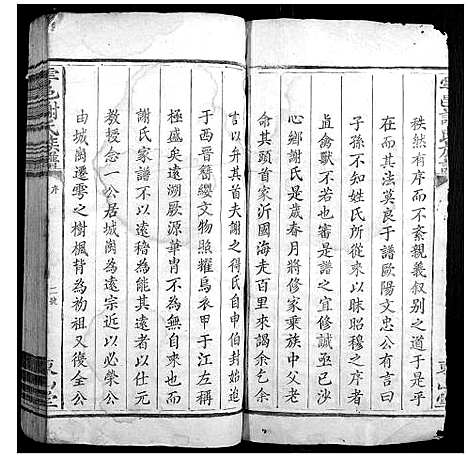 秩然有序而不紊親義叙别之道于是乎
在而其法莫良于譜歐陽文忠公有言曰
子孫不知姓氏所從來以昧昭穆之序者
直禽獸不若也審是譜之宜修誠亟已沙
心鄉謝氏是歲春月將修家乗族中父老
俞其頭首家沂國海走百里來徵余乞余
言以弁其首夫謝之得氏自申伯封始迨
于西晋簪纓文物照耀烏衣甲于江左稱
極盛矣遠溯厥源華胄不為無自來也而
謝氏家譜不以遠稽為能其遠者比以仕
教授念一公居城崗為遠宗近以必榮公
由城崗遷雩之樹楓背為初祖又後全公
雩邑謝氏族譜
序
二號
東山堂